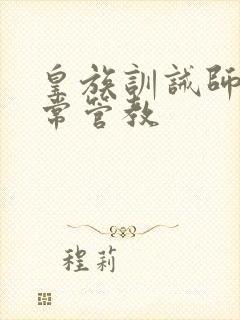 皇族訓誡師
常管教
程莉